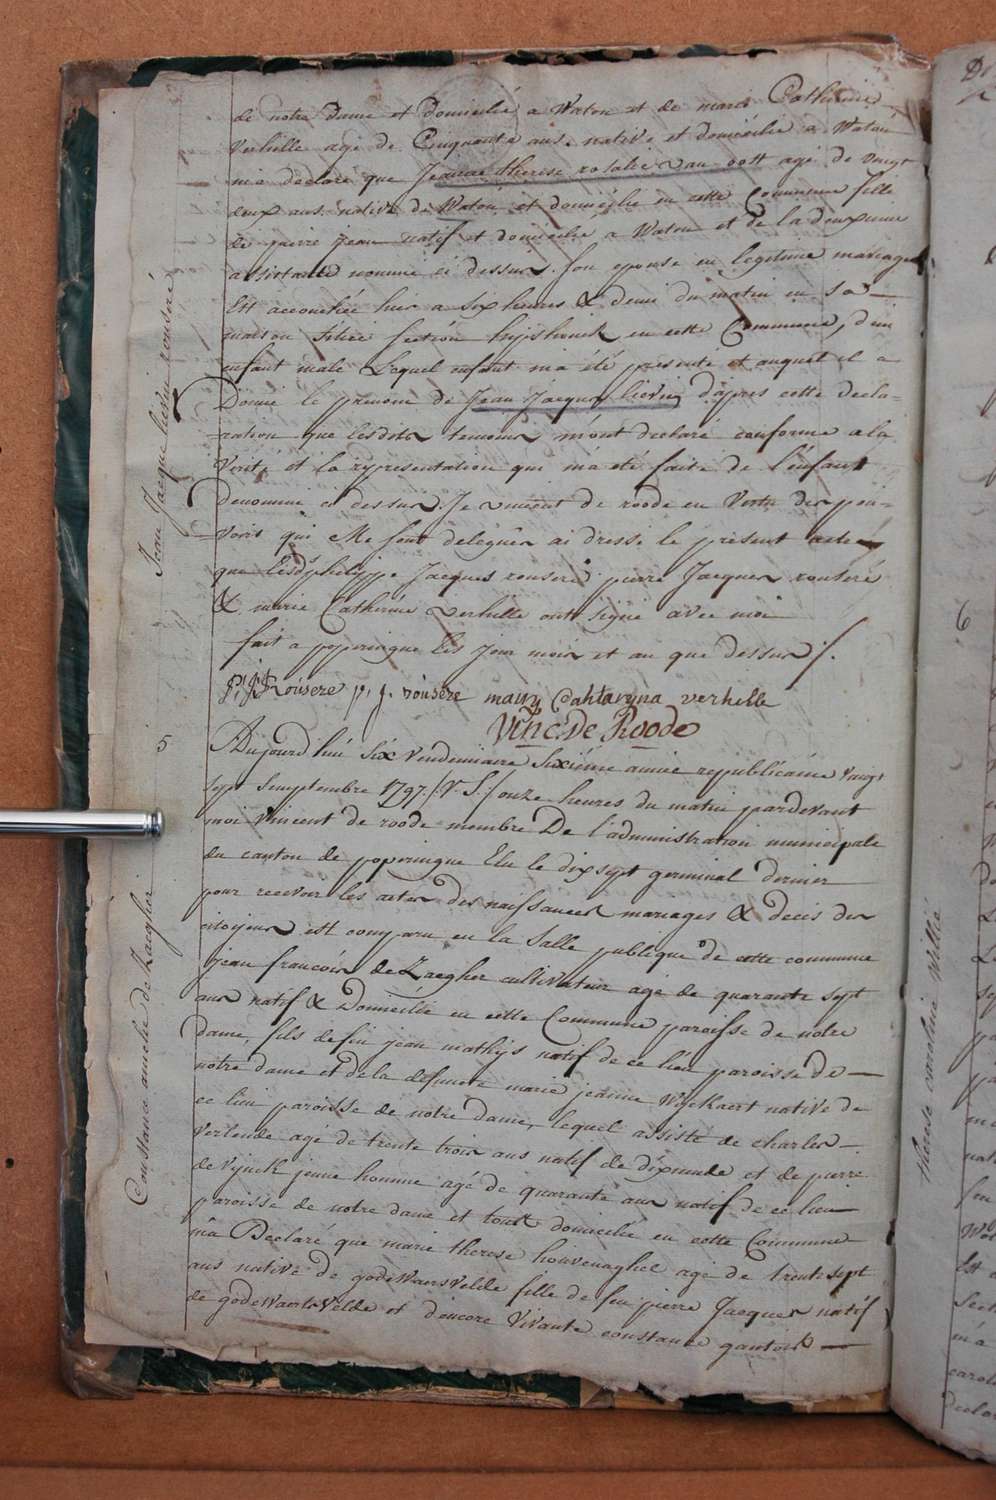 de notre dame et domicilié a Watou et de marie Catherine
Verhille agé de Cinquante ans native et domiciliée a Watou
m'a declaré que Jeanne therese rosalie van oott agé de vingt
deux ans native de Watou et domiciliée en cette Commune fille
de pierre Jean natif et domicilié a Watou et de la deuxieme
assistante nommée ci dessus. son epouse en legitime mariage
Est accouchée hier a six heures & demi du matin en sa
maison située section hyshouck en cette Commune, d'un
enfant male Lequel enfant m'a été presenté et auquel il a
Donné le prenom de Jean Jacque lievin d'apres cette decla-
-ration que lesdits temoins m'ont declaré conforme a la
Verité et la representation qui m'a été faite de l'enfant
denommé ci dessus. Je vincent de roode en Vertu des pou-
-voirs qui Me sont delegués ai dressé le présent acte
que lesd. philippe Jacques rouseré pierre Jacques rouseré
& marie Catherine verhille ont signé avec moi
fait a poperingue les jour mois et an que dessus ./.
P: J: Rousere p, j. rousere mairy Cahtaryna verhelle
Vinc De Roode
Jean Jacque lievin rouseré
5
Aujourd'hui six vendemiaire sixième année republicaine vingt
sept semptembre 1797 /V.S./ onze heures du matin pardevant
moi Vincent de roode membre De l'administration municipale
du canton de poperingue Elu le dix sept germinal dernier
pour recevoir les actes des naissances mariages & decés des
citoyens est comparu en la Salle publique de cette commune
jean francois de Zaegher cultivateur agé de quarante sept
ans natif & Domicilié en cette Commune paroisse de notre
dame, fils de feu jean mathys natif de ce lieu paroisse de
notre dame et de la defuncte marie jeanne Wyckaert native de
ce lieu paroisse de notre dame, lequel assisté de charles
Verlende agé de trente trois ans natif de dixmude et de pierre
devynck jeune homme agé de quarante ans natif de ce lieu
paroisse de notre dame et tous domicilié en cette Commune
m'a Declaré que marie therese houvenaghel agé de trente sept
ans native de godewaersvelde fille de feu pierre Jacques natif
de godewaersvelde et d'encore Vivante constance gantois
Constance amelie de Zaegher
6
therese caroline Willé